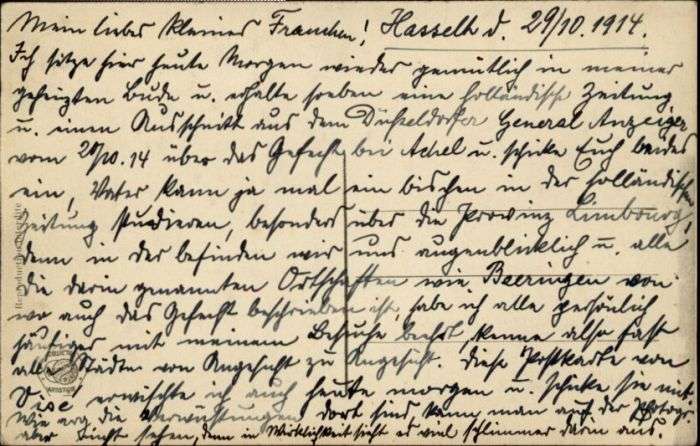 Mein liebes kleines Frauchen! Hasselt d. 29/10.1914.
Ich sitze hier heute Morgen wieder gemütlich in meiner
geheizten Bude u. erhalte soeben eine holländische Zeitung
u. einen Ausschnitt aus dem Düsseldorfer General Anzeiger
vom 20/10.14 über das Gefecht bei Achel u. schicke Euch beides
ein, Vater kann ja mal ein bischen in der holländischen
Zeitung studieren, besonders über die Provinz Limbourg,
denn in der befinden wir uns augenblicklich u. alle
die darin genannten Ortschaften wie Baeringen von
wo auch das Gefecht beschrieben ist, habe ich alle persönlich
häufiger mit meinem Besuche beehrt, kenne also fast
alle Städte von Angesicht zu Angesicht. Diese Postkarte von
Vise erwischte ich auch heute morgen u. schicke sie mit.
Wie arg die Verwüstungen dort sind kann man auf der
aber nicht sehen, denn in Wirklichkeit sieht es viel schlimmer darin aus.